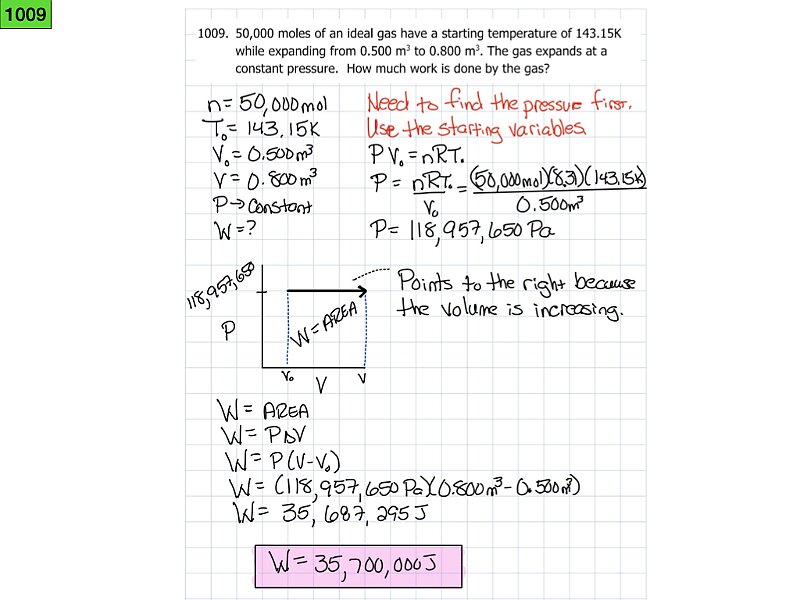 1009
1009. 50,000 moles of an ideal gas have a starting temperature of 143.15K
while expanding from 0.500 m³ to 0.800 m³. The gas expands at a
constant pressure. How much work is done by the gas?
n = 50,000 mol
T₀ = 143.15K
V₀ = 0.500m³
V = 0.800m³
P → Constant
W = ?
Need to find the pressure first.
Use the starting variables.
P V₀ = nRT₀
P = nRT₀/V₀ = (50,000mol)(8.31)(143.15K)/0.500m³
P = 118,957,650 Pa
118,957,650
P
W = AREA
V₀
V
V
Points to the right because
the volume is increasing.
W = AREA
W = PΔV
W = P(V-V₀)
W = (118,957,650 Pa)(0.800m³ - 0.500m³)
W = 35,687,295 J
W = 35,700,000 J